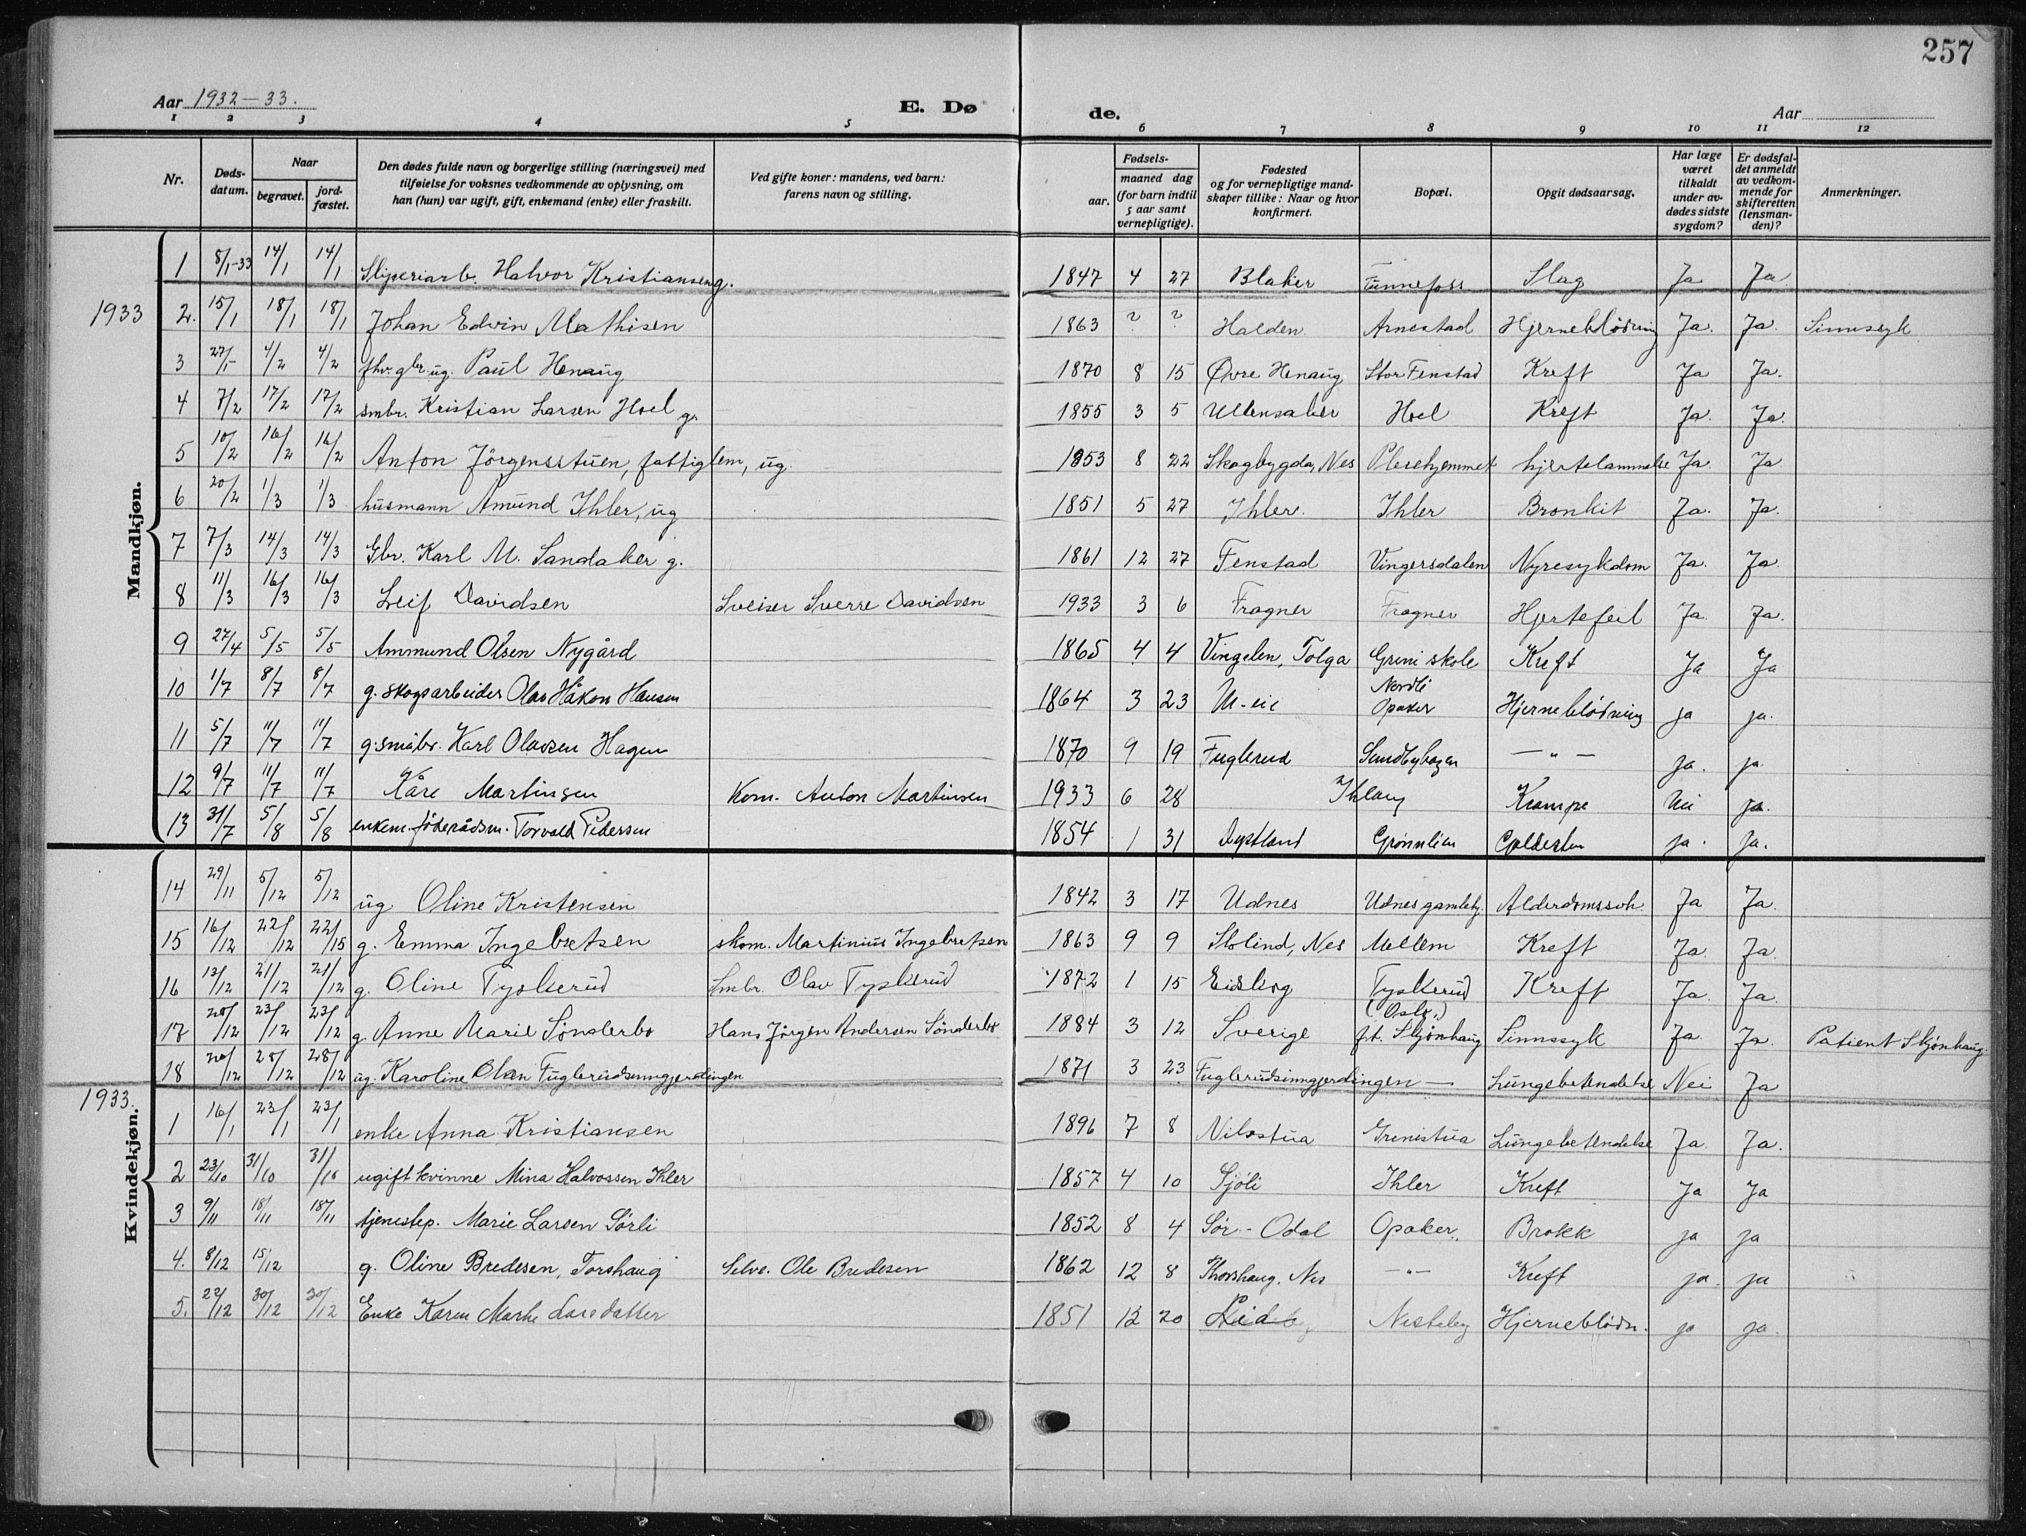 257
Aar 1932-33. E. Dø de. Aar
1 2 3 4 5 6 7 8 9 10 11 12
Nr. Døds-datum. Naar begravet. jord-fæstet. Den dødes fulde navn og borgerlige stilling (næringsvei) med tilføielse for voksnes vedkommende av oplysning, om han (hun) var ugift, gift, enkemand (enke) eller fraskilt. Ved gifte koner: mandens, ved barn: farens navn og stilling. Fødsels- aar. maaned dag (for barn indtil 5 aar samt vernepligtige). Fødested og for vernepligtige mand-skaper tillike: Naar og hvor konfirmert. Bopæl. Opgit dødsaarsag. Har læge været tilkaldt under av-dødes sidste sygdom? Er dødsfal-det anmeldt av vedkom-mende for skifteretten (lensman-den)? Anmerkninger.
Mandkjøn.
1 8/1-33 14/1 14/1 Sliperiarb. Halvor Kristiansen g. 1847 4 27 Blaker Funnefoss Slag Ja Ja
1933 2. 15/1 18/1 18/1 Johan Edvin Mathisen 1863 ? ? Halden Arnestad Hjerneblødning Ja. Ja. Sinnssyk
3 27/1 4/2 4/2 fhv. gbr ug. Paul Henaug 1870 8 15 Øvre Henaug Stor Fenstad Kreft Ja Ja.
4 7/2 17/2 17/2 smbr. Kristian Larsen Hoel g. 1855 3 5 Ullensaker Hoel Kreft Ja. Ja.
5 10/2 16/2 16/2 Anton Jörgensstuen, fattiglem, ug. 1853 8 22 Skogbygda, Nes Pleiehjemmet hjertelammelse Ja. Ja
6 20/2 1/3 1/3 husmann Amund Ihler, ug 1851 5 27 Ihler. Ihler Bronkit Ja. Ja.
7 7/3 14/3 14/3 Gbr. Karl M. Sandaker g. 1861 12 27 Fenstad Vingersdalen Nyresykdom Ja. Ja.
8 11/3 16/3 16/3 Leif Davidsen Sveiser Sverre Davidsen 1933 3 6 Fragner Fragner Hjertefeil Ja. Ja.
9 27/4 5/5 5/5 Ammund Olsen Nygård 1865 4 4 Vingelen, Tolga Greni skole Kreft Ja Ja
10 1/7 8/7 8/7 g. skogsarbeider Olav Håkon Hansen 1864 3 23 U-eie Nordli Opaker Hjerneblødning ja ja.
11 5/7 11/7 11/7 g. småbr. Karl Olavsen Hagen 1870 9 19 Fuglerud Sundbyhagen — " — ja. ja.
12 9/7 11/7 11/7 Kåre Martinsen Kom. Anton Martinsen 1933 6 28 Ihlang Krampe Nei ja.
13 31/7 5/8 5/8 enkem. föderådsm. Torvald Pedersen 1854 1 31 Dystland Grønnlien Galdesten ja. Ja.
Kvindekjøn.
14 29/11 5/12 5/12 ug Oline Kristensen 1842 3 17 Udnes Udnes gamlehj. Alderdomssvk. Ja Ja.
15 16/12 22/12 22/15 g. Emma Ingebretsen skom. Martinius Ingebretsen 1863 9 9 Stolind, Nes Mellem Kreft Ja. Ja.
16 13/12 21/12 21/12 g. Oline Tyskerud Smbr. Olav Tyskerud 1872 1 15 Eidsberg Tyskerud Kreft Ja. Ja.
17 20/12 23/12 23/12 g. Anne Marie Sønderbo Hans Jörgen Andersen Sönderbo 1884 3 12 Sverige (Oslo.) fr. Skjønhaug Sinnssyk Ja. Ja. Patient Skjønhaug.
18 20/12 28/12 28/12 ug. Karoline Olsen Fuglerudsinngjerdingen 1871 3 23 Fuglerudsinngjerdingen — Lungebetendelse Nei Ja
1933. 1 16/1 23/1 23/1 enke Anna Kristiansen 1896 7 8 Nilsstua Grenistua Lungebetendelse Ja. Ja.
2 23/10 31/10 31/10 ugift kvinne Mina Halvorsen Ihler 1857 4 10 Sjøli Ihler Kreft Ja Ja
3 9/11 18/11 18/11 tjenestep. Marie Larsen Sørli 1852 8 4 Sør-Odal Opaker. Brokk ja ja
4. 8/12 15/12 g. Oline Bredesen, Torshaug Selve. Ole Bredesen 1862 12 8 Thorshaug, Nes — " — Kreft ja. ja
5. 22/12 30/12 30/12 Enke Karen Marthe Larsdatter 1851 12 20 Nesteby Hjerneblødn. ja ja.